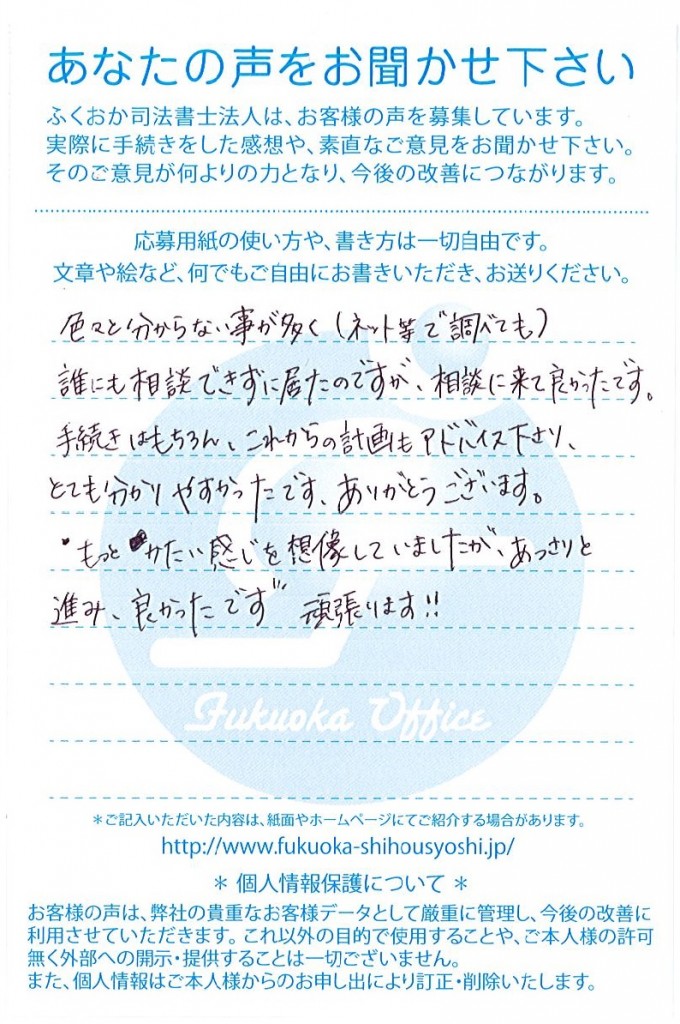 あなたの声をお聞かせ下さい
ふくおか司法書士法人は、お客様の声を募集しています。
実際に手続きをした感想や、素直なご意見をお聞かせ下さい。
そのご意見が何よりの力となり、今後の改善につながります。
応募用紙の使い方や、書き方は一切自由です。
文章や絵など、何でもご自由にお書きいただき、お送りください。
色々と分からない事が多く(ネット等で調べても)
誰にも相談できずに居たのですが、相談に来て良かったです。
手続きはもちろん、これからの計画もアドバイス下さり、
とても分かりやすかったです、ありがとうございます。
"もっとかたい感じを想像していましたが、あっさりと
進み、良かったです" 頑張ります!!
Fukuoka Office
*ご記入いただいた内容は、紙面やホームページにてご紹介する場合があります。
http://www.fukuoka-shihousyoshi.jp/
* 個人情報保護について *
お客様の声は、弊社の貴重なお客様データとして厳重に管理し、今後の改善に
利用させていただきます。これ以外の目的で使用することや、ご本人様の許可
無く外部への開示・提供することは一切ございません。
また、個人情報はご本人様からのお申し出により訂正・削除いたします。